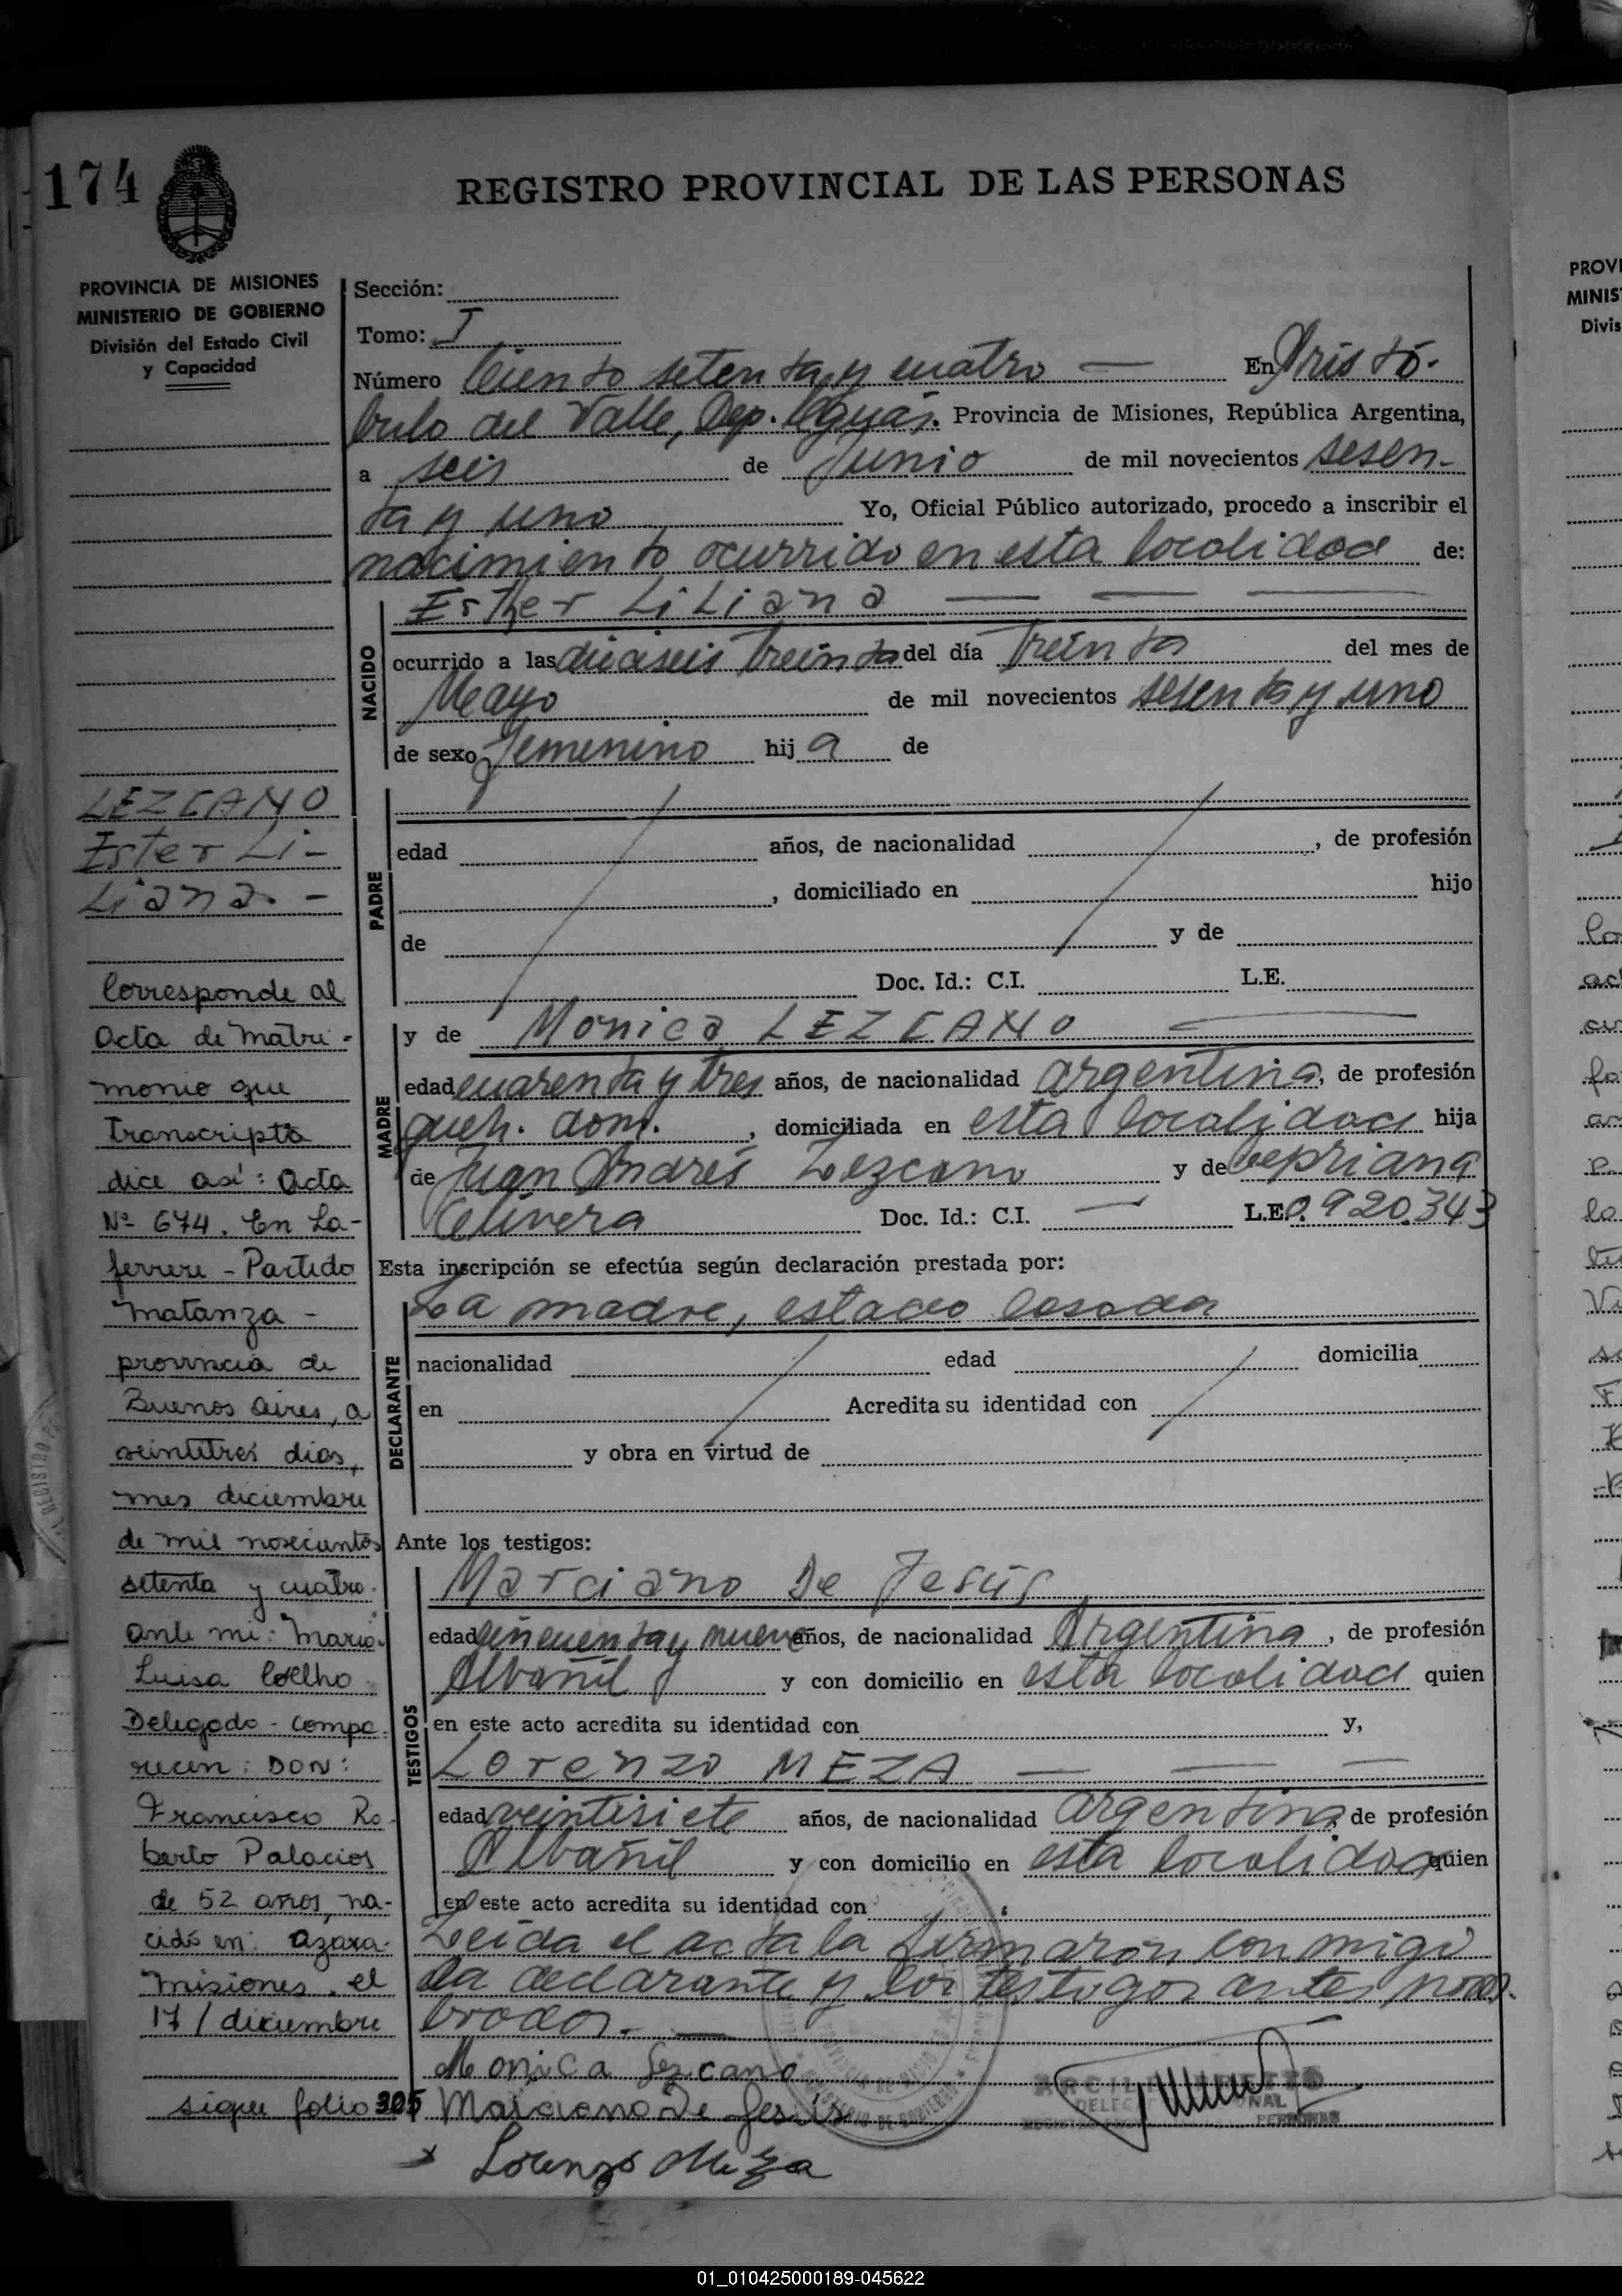 174
REGISTRO PROVINCIAL DE LAS PERSONAS
PROVINCIA DE MISIONES
MINISTERIO DE GOBIERNO
División del Estado Civil
y Capacidad
LEZCANO
Ester Li-
Liana. -
Corresponde al
Acta de Matri-
monio que
transcripta
dice así: Acta
Nº 674. En La-
ferrere - Partido
Matanza -
provincia de
Buenos Aires, a
veintitrés días,
mes diciembre
de mil novecientos
setenta y cuatro.
ante mi: Maria
Luisa Coelho
Delegado - compa-
recen: DON:
Francisco Ro-
berto Palacios
de 52 años, na-
cido en: Azara-
Misiones, el
17/diciembre
sigue folio 305
Sección:
Tomo: I
Número Ciento setenta y cuatro — En Aristó-
bulo del Valle, Dep. Cguás. Provincia de Misiones, República Argentina,
a seis de Junio de mil novecientos sesen-
ta y uno Yo, Oficial Público autorizado, procedo a inscribir el
nacimiento ocurrido en esta localidad de:
NACIDO
Esther Liliana — — —
ocurrido a las dieciseis treinta del día treinta del mes de
Mayo de mil novecientos sesenta y uno
de sexo femenino hija de
PADRE
edad años, de nacionalidad , de profesión
, domiciliado en hijo
de y de
Doc. Id.: C.I. L.E.
MADRE
y de Monica LEZCANO —
edad cuarenta y tres años, de nacionalidad argentina, de profesión
queh. dom. , domiciliada en esta localidad hija
de Juan Andrés Lezcano y de Cepriana
Olivera Doc. Id.: C.I. — L.E. 0.920.343
Esta inscripción se efectúa según declaración prestada por:
DECLARANTE
La madre, estado casada
nacionalidad edad domicilia
en Acredita su identidad con
y obra en virtud de
Ante los testigos:
TESTIGOS
Marciano De Jesús
edad cincuenta y nueve años, de nacionalidad Argentina, de profesión
Albañil y con domicilio en esta localidad quien
en este acto acredita su identidad con y,
Lorenzo MEZA — — —
edad veintisiete años, de nacionalidad argentina, de profesión
Albañil y con domicilio en esta localidad quien
en este acto acredita su identidad con
Leída el acta la firmarón conmigo
la declarante y los testigos antes nom-
brados. —
Monica Lezcano
Marciano De Jesús
Lorenzo Meza
PROVI
MINIS
Divis
01_010425000189-045622